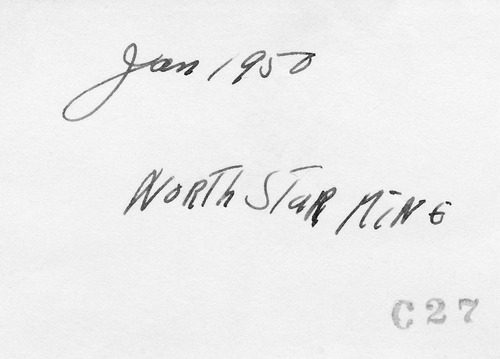 Jan 1950
NORTH STAR MINE
C27